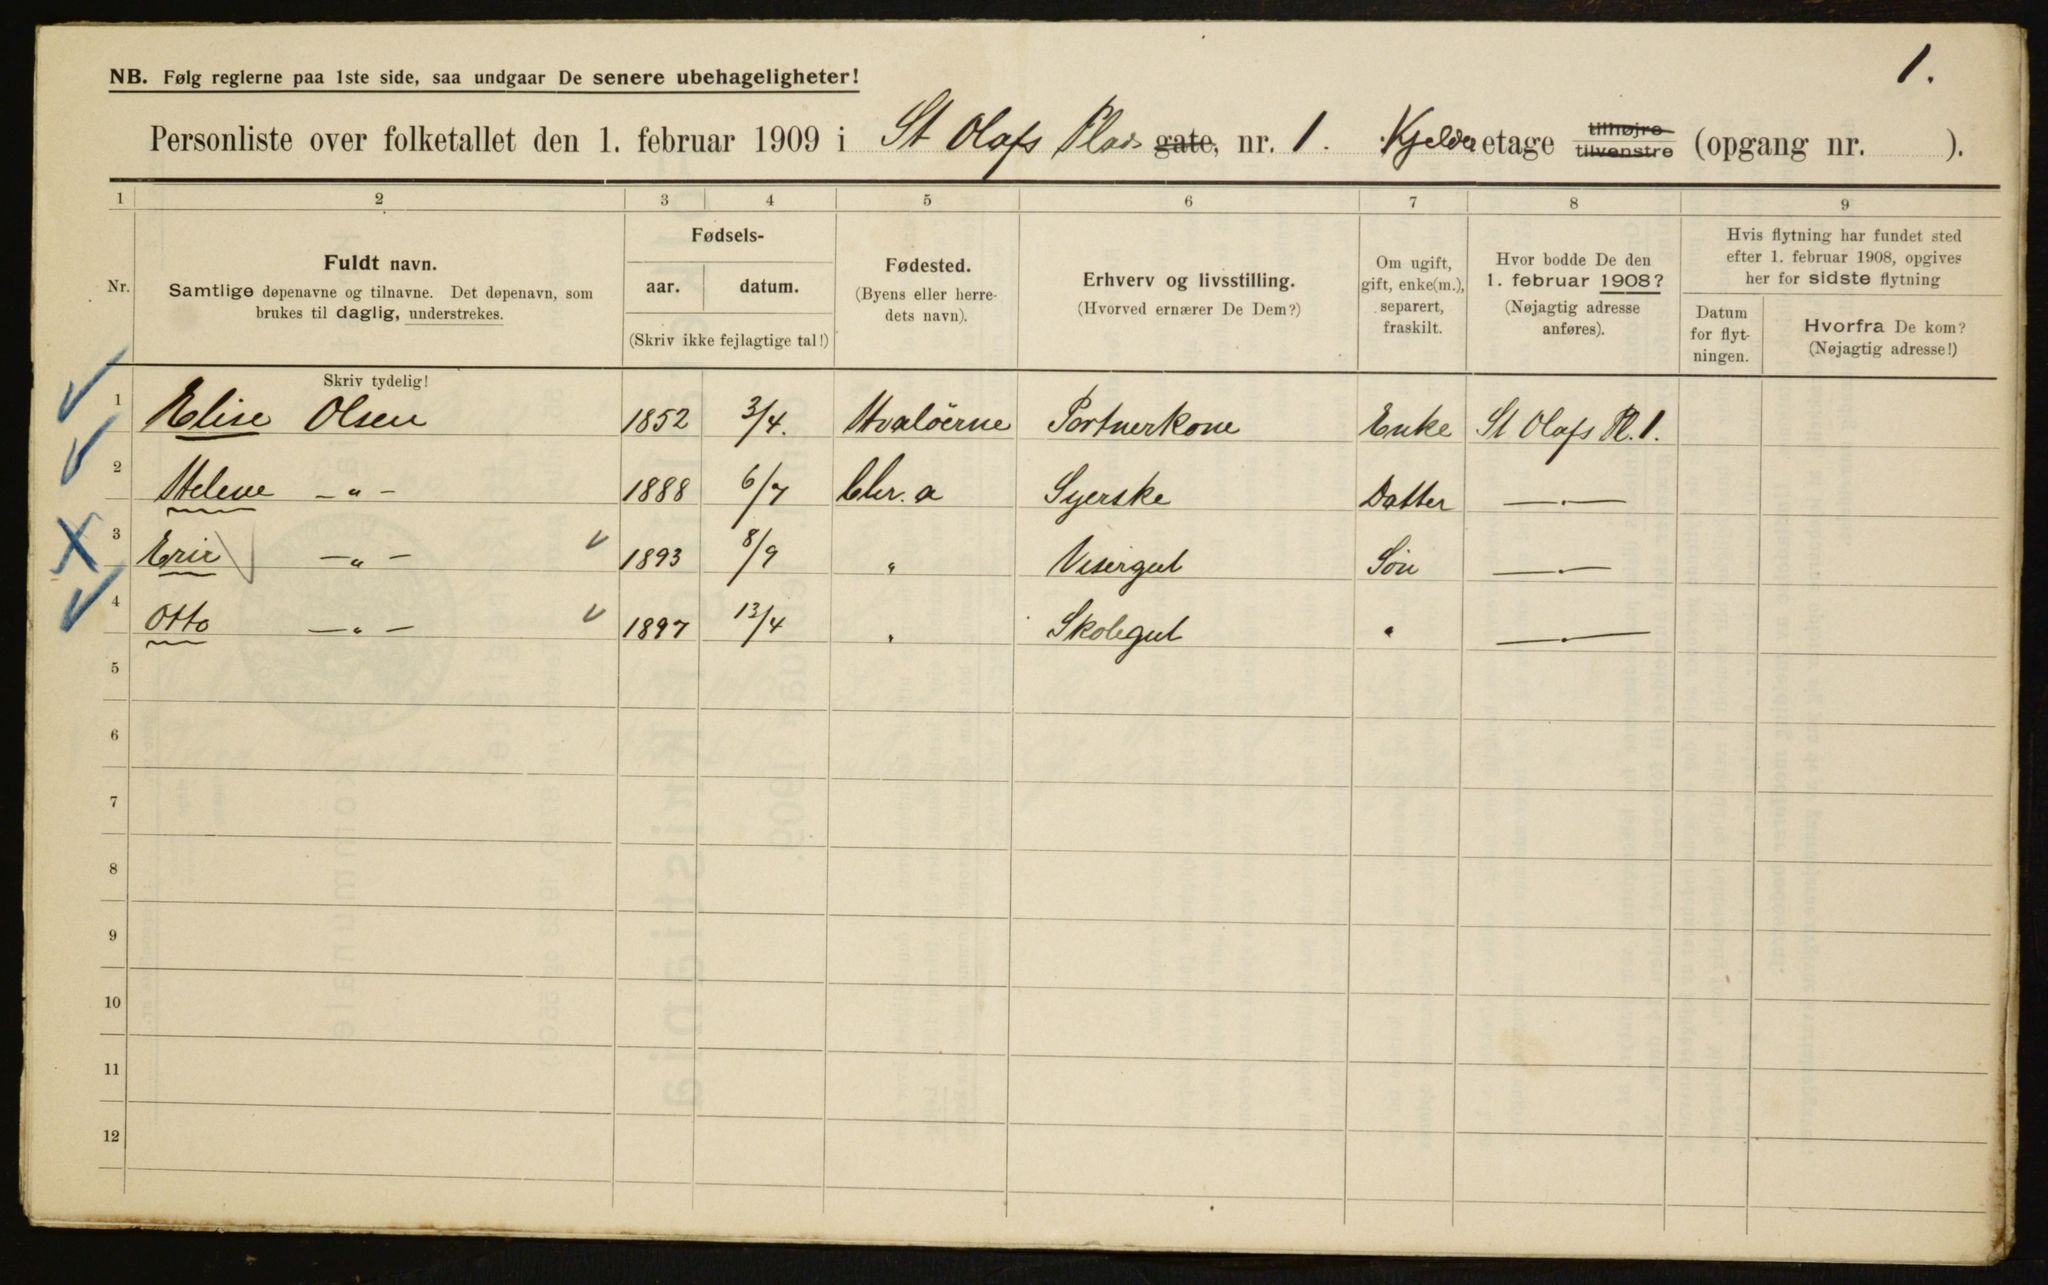 1.
NB. Følg reglerne paa 1ste side, saa undgaar De senere ubehageligheter!
Personliste over folketallet den 1. februar 1909 i St Olafs Plads gate, nr. 1. Kjelder etage tilhøjre tilvenstre (opgang nr. ).
1 2 3 4 5 6 7 8 9
Nr.
Fuldt navn.
Samtlige døpenavne og tilnavne. Det døpenavn, som
brukes til daglig, understrekes.
Fødsels-
aar. datum.
(Skriv ikke fejlagtige tal!)
Fødested.
(Byens eller herre-
dets navn).
Erhverv og livsstilling.
(Hvorved ernærer De Dem?)
Om ugift,
gift, enke(m.),
separert,
fraskilt.
Hvor bodde De den
1. februar 1908?
(Nøjagtig adresse
anføres).
Hvis flytning har fundet sted
efter 1. februar 1908, opgives
her for sidste flytning
Datum
for flyt-
ningen.
Hvorfra De kom?
(Nøjagtig adresse!)
Skriv tydelig!
1 Elise Olsen 1852 3/4. Hvaløerne Portnerkone Enke St Olafs Pl. 1.
2 Helene —„— 1888 6/7 Chr. a Syerske Datter —„—
3 Eric —„— 1893 8/9 „ Visergut Søn —„—
4 Otto —„— 1897 13/4 „ Skolegut „ —„—
5
6
7
8
9
10
11
12